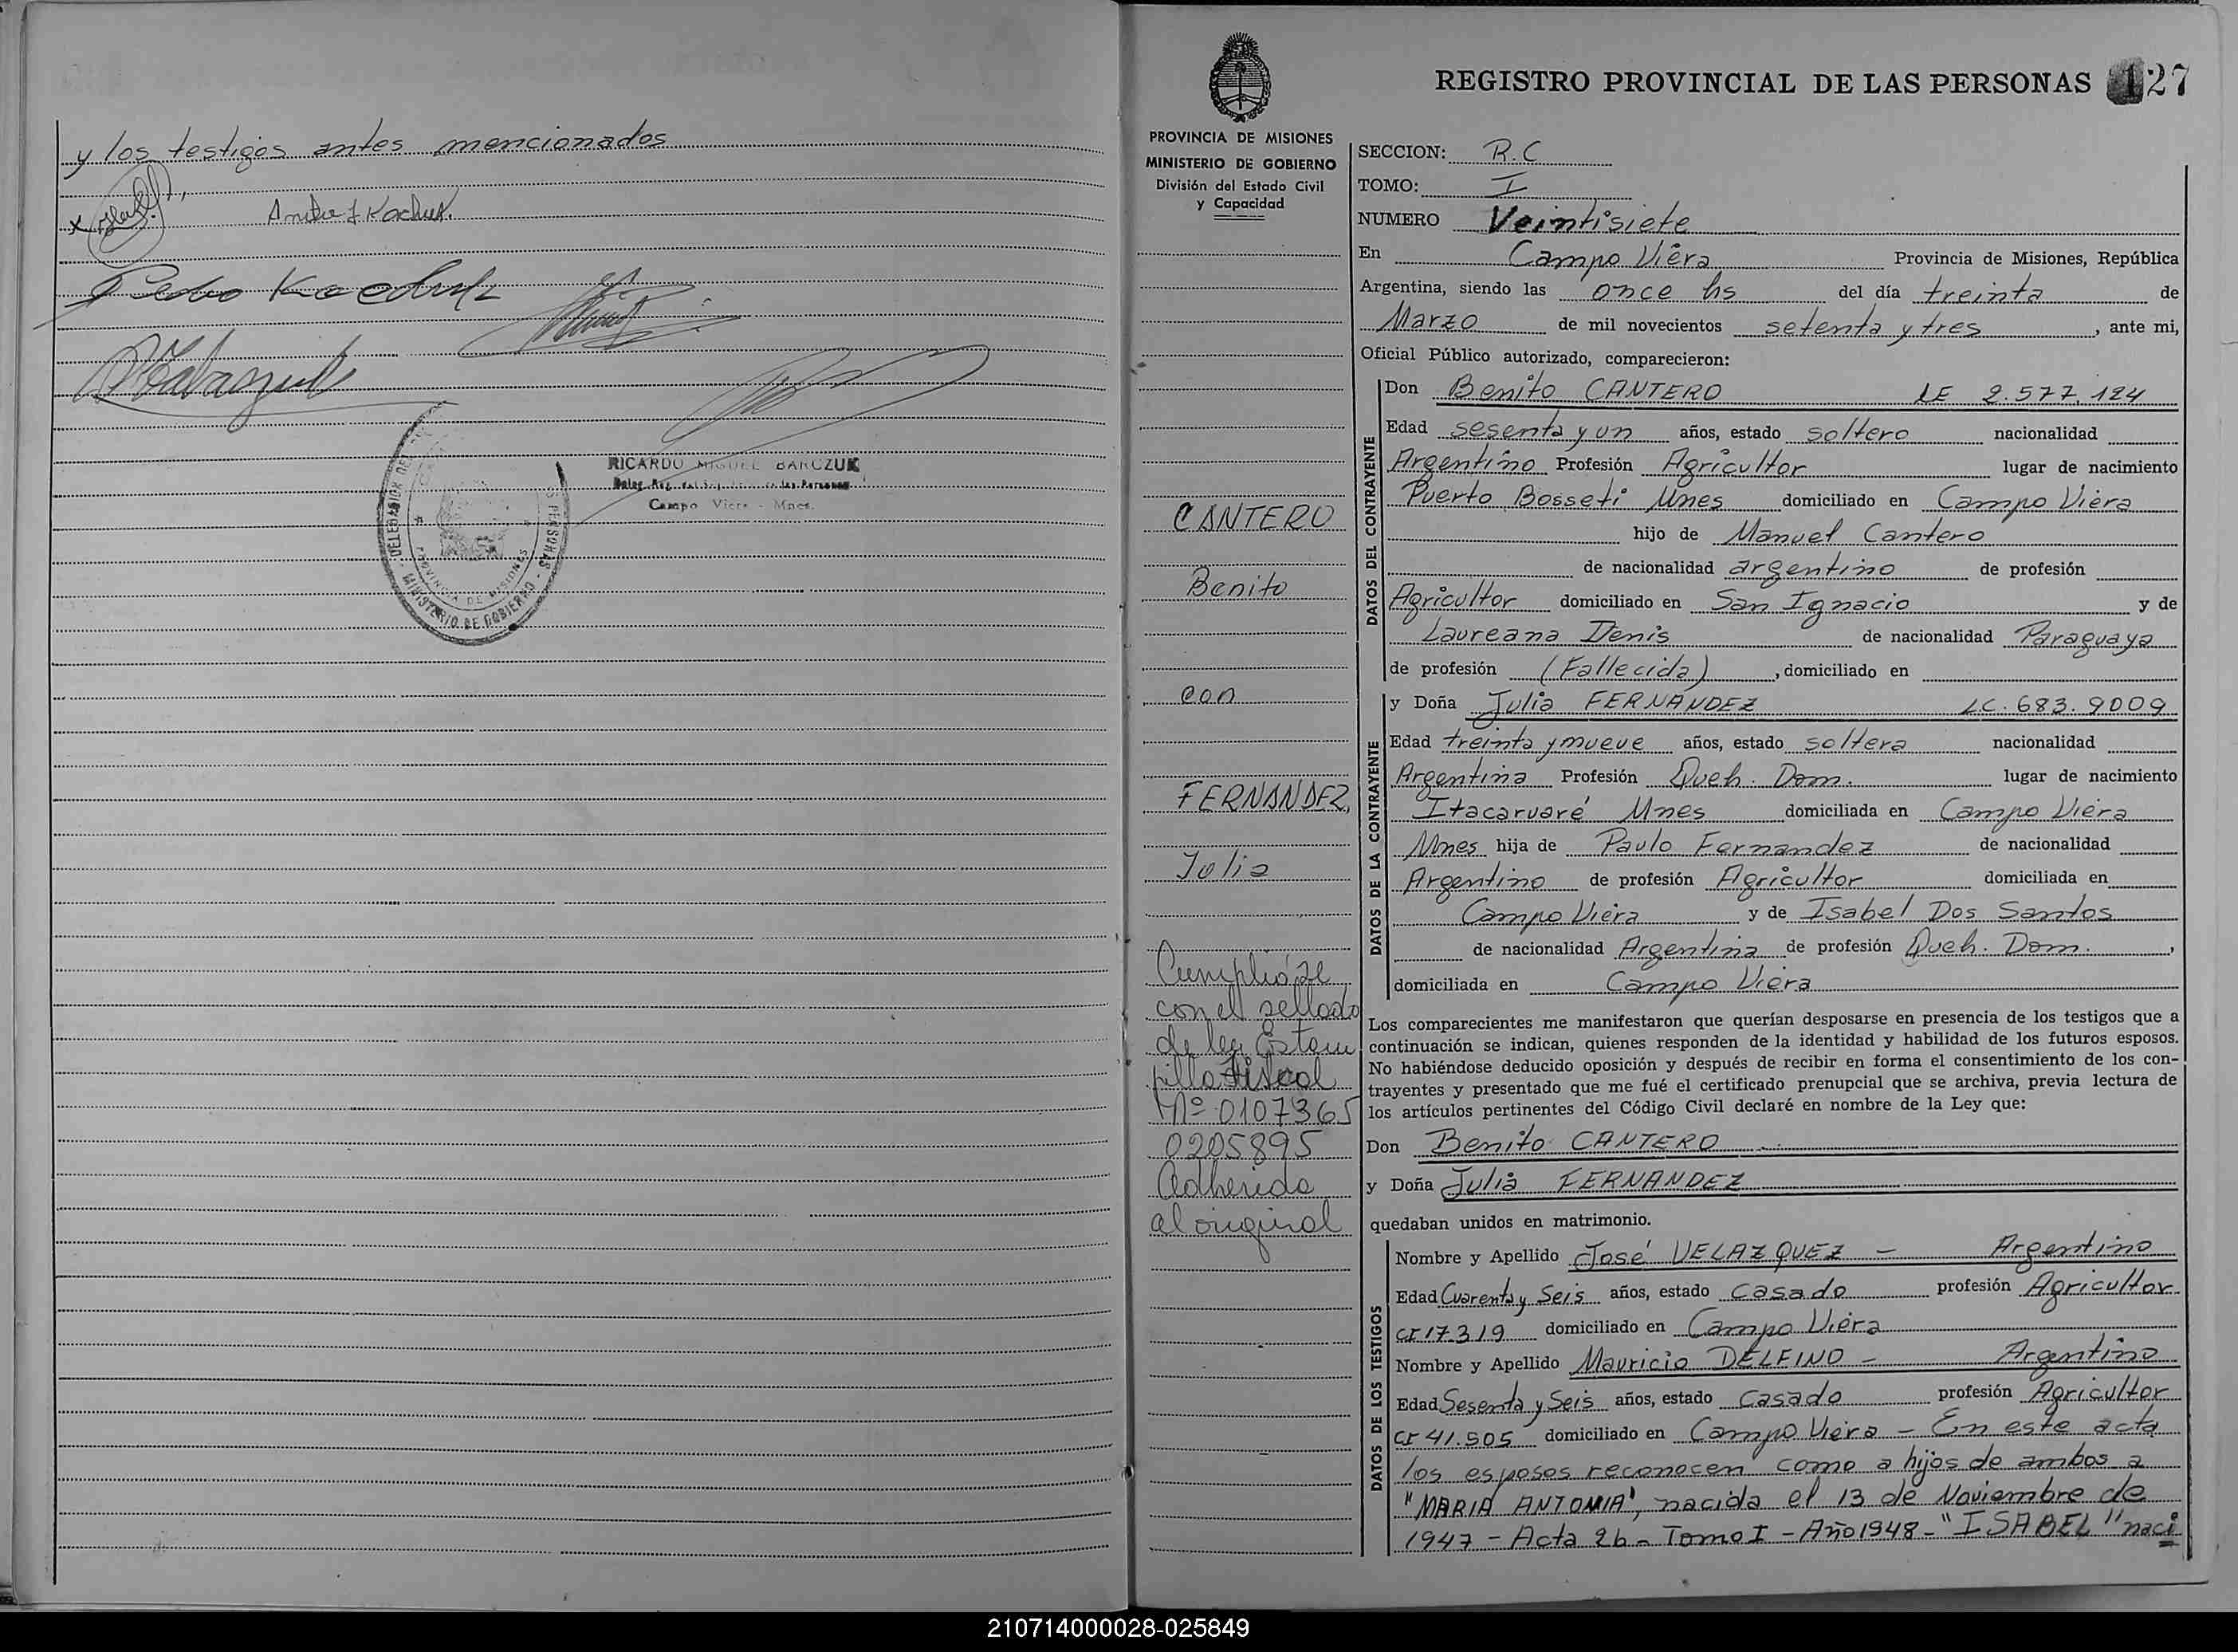 y los testigos antes mencionados
Pedro
RICARDO MIGUEL BARCZUK
Deleg. Reg. de las Personas
Campo Viera - Mnes.
MINISTERIO DE GOBIERNO
PROVINCIA DE MISIONES
PROVINCIA DE MISIONES
MINISTERIO DE GOBIERNO
División del Estado Civil
y Capacidad
CANTERO
Benito
con
FERNANDEZ,
Julia
Cumplióse
con el sellado
de ley Estam
pilla fiscal
Nº 0107365
0205895
Adherida
al original
REGISTRO PROVINCIAL DE LAS PERSONAS 127
SECCION: R.C
TOMO: I
NUMERO Veintisiete
En Campo Viera Provincia de Misiones, República
Argentina, siendo las once hs del día treinta de
Marzo de mil novecientos setenta y tres, ante mi,
Oficial Público autorizado, comparecieron:
DATOS DEL CONTRAYENTE
Don Benito CANTERO LE 2.577.124
Edad sesenta y un años, estado soltero nacionalidad
Argentino Profesión Agricultor lugar de nacimiento
Puerto Bosseti Mnes domiciliado en Campo Viera
hijo de Manuel Cantero
de nacionalidad argentino de profesión
Agricultor domiciliado en San Ignacio y de
Laureana Denis de nacionalidad Paraguaya
de profesión (Fallecida), domiciliado en
DATOS DE LA CONTRAYENTE
y Doña Julia FERNANDEZ LC. 683.9009
Edad treinta y nueve años, estado soltera nacionalidad
Argentina Profesión Queh. Dom. lugar de nacimiento
Itacaruaré Mnes domiciliada en Campo Viera
Mnes hija de Paulo Fernandez de nacionalidad
Argentino de profesión Agricultor domiciliada en
Campo Viera y de Isabel Dos Santos
de nacionalidad Argentina de profesión Queh. Dom.,
domiciliada en Campo Viera
Los comparecientes me manifestaron que querían desposarse en presencia de los testigos que a
continuación se indican, quienes responden de la identidad y habilidad de los futuros esposos.
No habiéndose deducido oposición y después de recibir en forma el consentimiento de los con-
trayentes y presentado que me fué el certificado prenupcial que se archiva, previa lectura de
los artículos pertinentes del Código Civil declaré en nombre de la Ley que:
Don Benito CANTERO
y Doña Julia FERNANDEZ
quedaban unidos en matrimonio.
DATOS DE LOS TESTIGOS
Nombre y Apellido José VELAZQUEZ - Argentino
Edad Cuarenta y Seis años, estado casado profesión Agricultor
CI 17.319 domiciliado en Campo Viera
Nombre y Apellido Mauricio DELFINO - Argentino
Edad Sesenta y Seis años, estado casado profesión Agricultor
CI 41.505 domiciliado en Campo Viera - En este acta
los esposos reconocen como a hijos de ambos a
"MARIA ANTONIA", nacida el 13 de Noviembre de
1947 - Acta 26 - Tomo I - Año 1948 - "ISABEL" naci
210714000028-025849